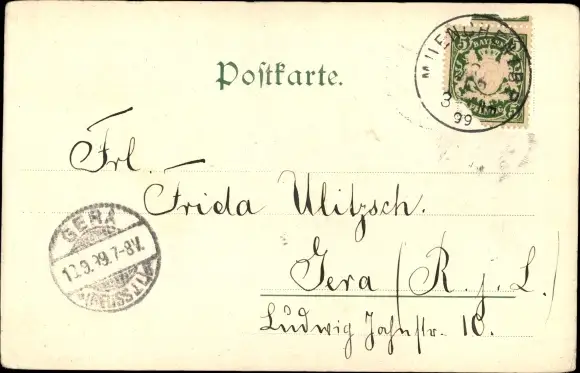 Postkarte.
MUENCHEN
BAYERN
99
Frl.
Frida Ulitzsch.
GERA
12.9.99.7-8V.
(REUSS J.L.)
Gera (R. j. L.)
Ludwig Jahnstr. 10.